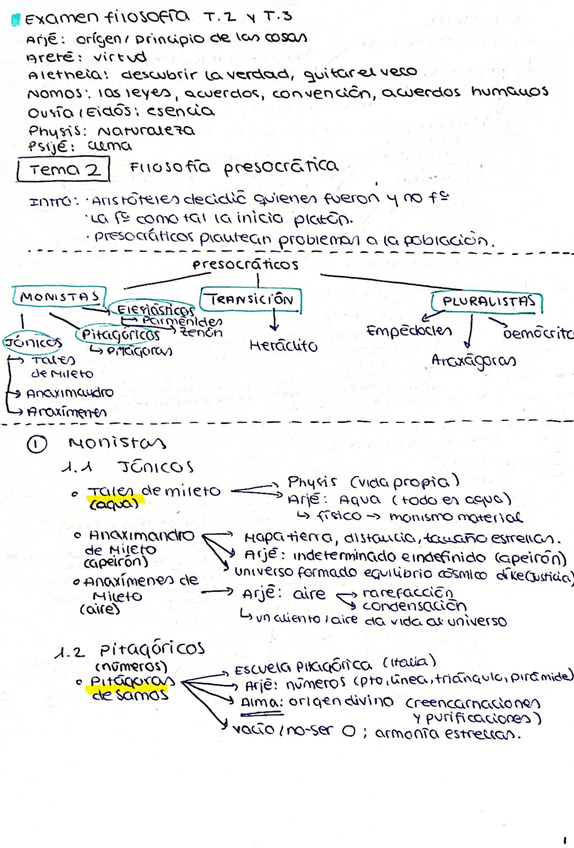 Examen filosofía T.2 y T.3
Arjé: origen/principio de las cosas
Areté: virtud
Aletheia: descubrir la verdad, quitar el velo
Nomos: las leyes, acuerdos, convención, acuerdos humanos
Ousía/Eidós: esencia
Physis: Naturaleza
Psijé: alma
Tema 2 Filosofía presocrática
Intro: · Aristóteles decidió quienes fueron y no fº
· La fº como tal la inicia platón.
· presocráticos plantean problemas a la población.
presocráticos
MONISTAS
Elesiásticos
→ Parménides
zenón
Pitagóricos
↳ Pitágoras
Jónicos
→ Tales
de Mileto
→ Anaximandro
→ Anaxímenes
TRANSICIÓN
Heráclito
PLURALISTAS
Empédocles
Anaxágoras
Demócrito
① Monistas
1.1 Jónicos
• Tales de mileto
(agua)
Physis (vida propia)
Arjé: Agua (todo es agua)
↳ físico → monismo material
• Anaximandro
de Mileto
(apeirón)
Mapa tierra, distancia, tamaño estrellas.
Arjé: indeterminado e indefinido (apeirón)
universo formado equilibrio cósmico díke (justicia)
• Anaxímenes de
Mileto
(aire)
Arjé: aire
rarefacción
condensación
↳ un aliento/aire da vida al universo
1.2 Pitagóricos
(números)
• Pitágoras
de Samos
Escuela Pitagórica (Italia)
Arjé: números (pto, línea, triángulo, pirámide)
Alma: origen divino (reencarnaciones
y purificaciones)
vacío/no-ser 0; armonía estrellas.
1